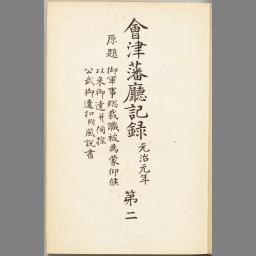 會津藩廳記録 元治元年 第二
原題
御軍事総裁職被為蒙仰候
以来御達并伺控
公武御達扣附風説書